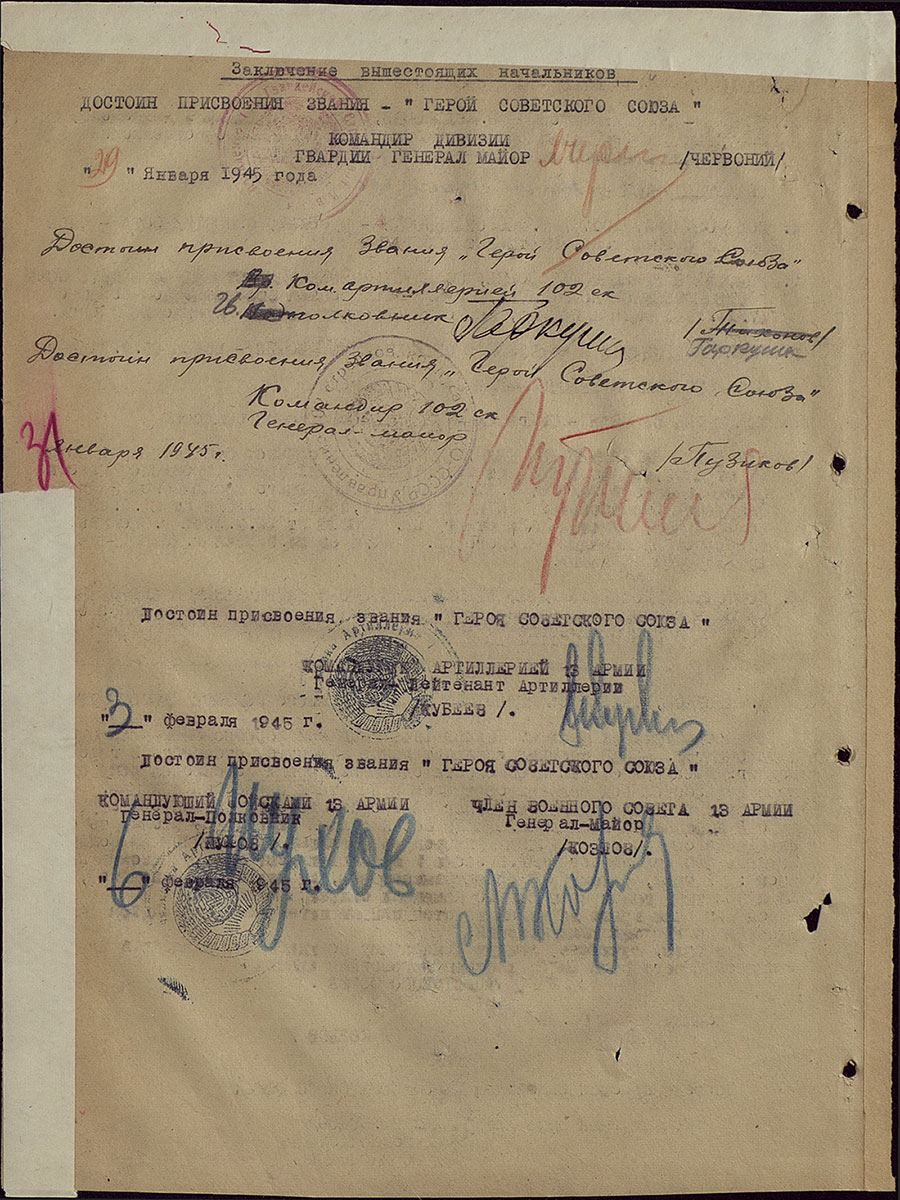 Заключение вышестоящих начальников
ДОСТОИН ПРИСВОЕНИЯ ЗВАНИЯ - " ГЕРОЙ СОВЕТСКОГО СОЮЗА "
КОМАНДИР ДИВИЗИИ
ГВАРДИИ ГЕНЕРАЛ МАЙОР /ЧЕРВОНИЙ/
"29" Января 1945 года
Достоин присвоения Звания „Герой Советского Союза"
Вр. Ком артиллерией 102 ск
Гв. полковник Гаркуша /Тихонов/
Гаркуша
Достоин присвоения Звания „Герой Советского Союза"
Командир 102 ск
Генерал-майор
31 января 1945г. /Пузиков/
Достоин присвоения звания " ГЕРОЯ СОВЕТСКОГО СОЮЗА "
КОМАНДУЮЩ АРТИЛЛЕРИЕЙ 13 АРМИИ
Генерал-Лейтенант Артиллерии
"3" февраля 1945 г. /КУБЕЕВ/.
Достоин присвоения звания " ГЕРОЯ СОВЕТСКОГО СОЮЗА "
КОМАНДУЮЩИЙ ВОЙСКАМИ 13 АРМИИ ЧЛЕН ВОЕННОГО СОВЕТА 13 АРМИИ
Генерал-Полковник Генерал-Майор
/ПУХОВ/. /КОЗЛОВ/.
"6" февраля 1945 г.